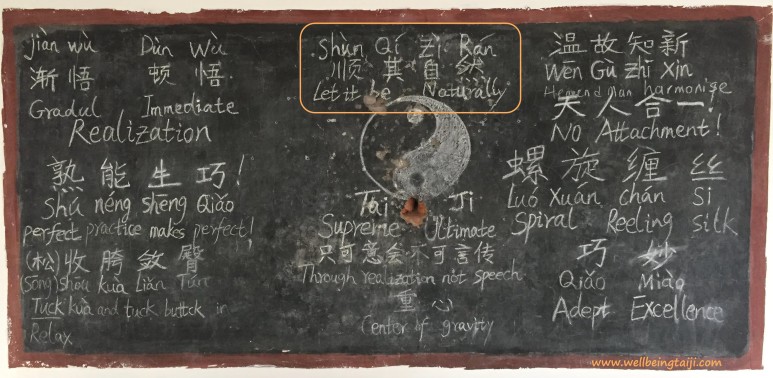 jiàn wù Dùn Wù
渐悟 顿悟
Gradul Immediate
Realization
熟能生巧!
Shú néng shēng Qiǎo
perfect practice makes perfect!
(松)收胯敛臀
(sōng) shōu kuà Liǎn Tún
Tuck kuà and tuck buttock in
Relax
Shùn Qí Zì Rán
顺其自然
Let it be Naturally
Tai Ji
Supreme Ultimate
只可意会不可言传
Through realization not speech
重心
Center of gravity
温故知新
Wēn Gù zhī Xīn
man harmonise
天人合一!
No Attachment!
螺旋缠丝
Luó Xuán chán Si
Spiral Reeling silk
巧妙
Qiǎo Miào
Adept Excellence
www.wellbeingtaiji.com